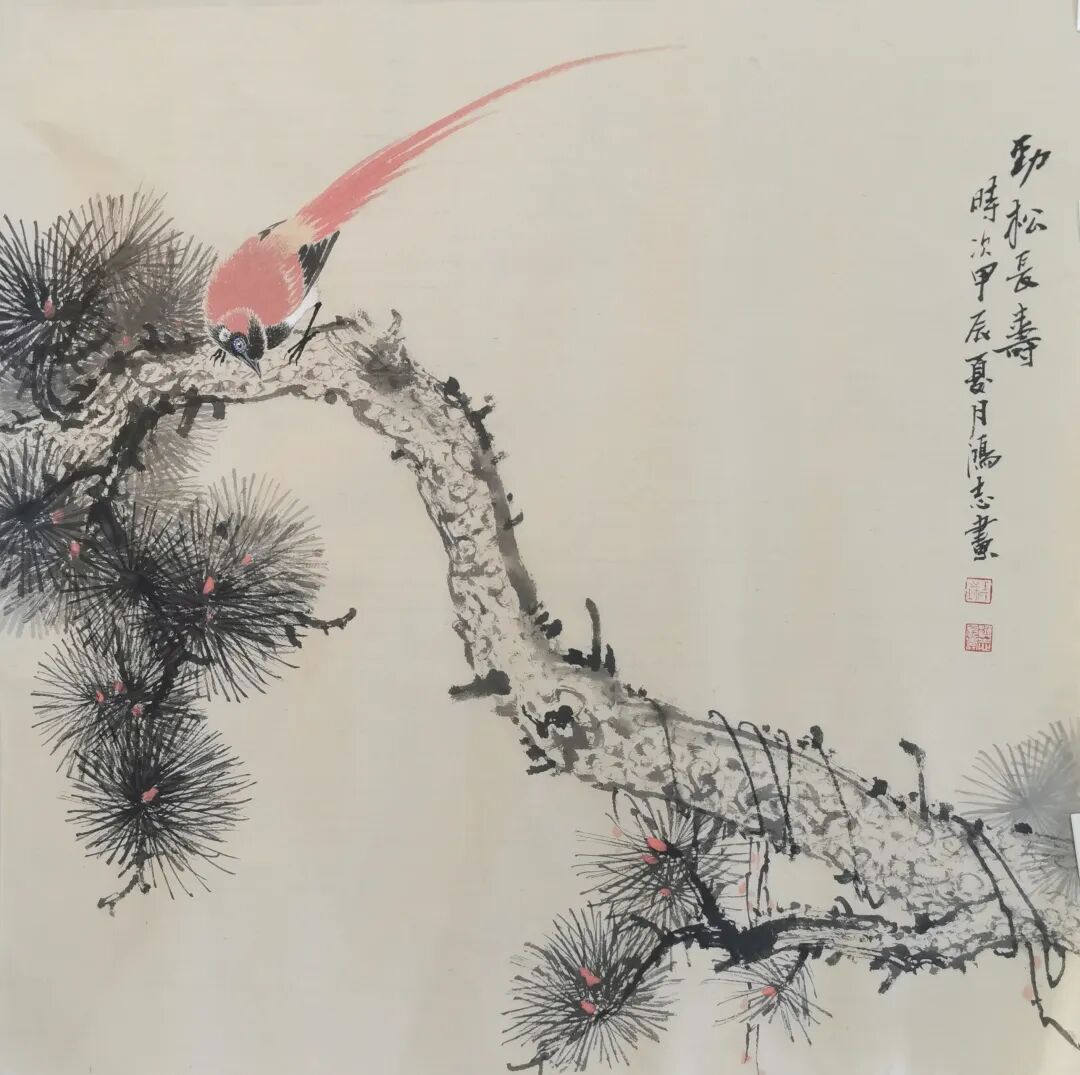 勁松長壽
時次甲辰夏月鴻志畫